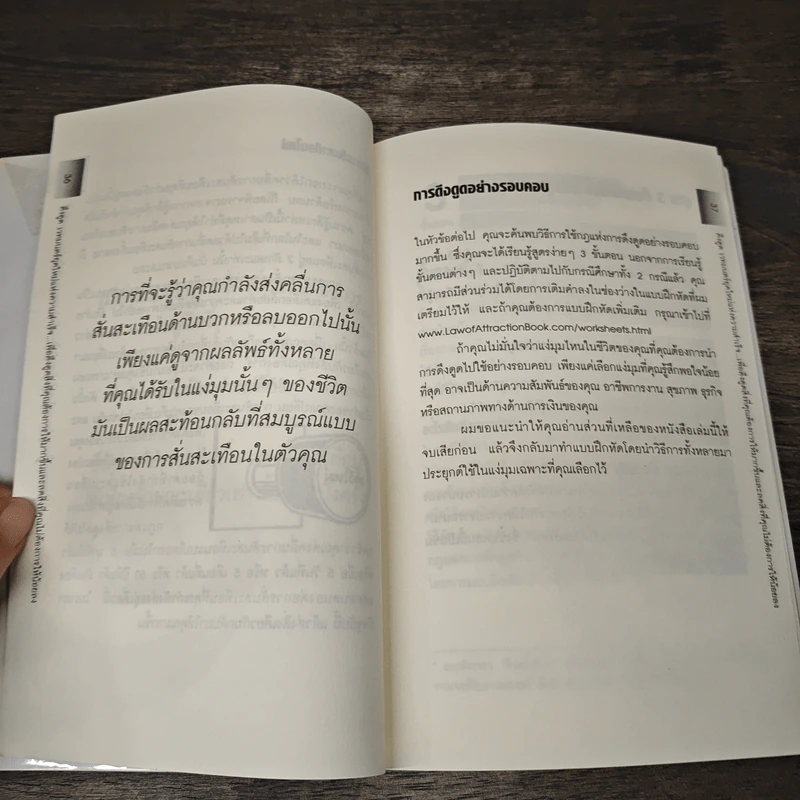 36
การที่จะรู้ว่าคุณกำลังส่งคลื่นการ
สั่นสะเทือนด้านบวกหรือลบออกไปนั้น
เพียงแค่ดูจากผลลัพธ์ทั้งหลาย
ที่คุณได้รับในแง่มุมนั้นๆ ของชีวิต
มันเป็นผลสะท้อนกลับที่สมบูรณ์แบบ
ของการสั่นสะเทือนในตัวคุณ
37
การดึงดูดอย่างรอบคอบ
ในหัวข้อต่อไป คุณจะค้นพบวิธีการใช้กฎแห่งการดึงดูดอย่างรอบคอบ
มากขึ้น ซึ่งคุณจะได้เรียนรู้สูตรง่ายๆ 3 ขั้นตอน นอกจากการเรียนรู้
ขั้นตอนต่างๆ และปฏิบัติตามไปกับกรณีศึกษาทั้ง 2 กรณีแล้ว คุณ
สามารถมีส่วนร่วมได้โดยการเติมคำลงในช่องว่างในแบบฝึกหัดที่ผม
เตรียมไว้ให้ และถ้าคุณต้องการแบบฝึกหัดเพิ่มเติม กรุณาเข้าไปที่
www.LawofAttractionBook.com/worksheets.html
ถ้าคุณไม่มั่นใจว่าแง่มุมไหนในชีวิตของคุณที่คุณต้องการนำ
การดึงดูดไปใช้อย่างรอบคอบ เพียงแค่เลือกแง่มุมที่คุณรู้สึกพอใจน้อย
ที่สุด อาจเป็นด้านความสัมพันธ์ของคุณ อาชีพการงาน สุขภาพ ธุรกิจ
หรือสถานภาพทางด้านการเงินของคุณ
ผมขอแนะนำให้คุณอ่านส่วนที่เหลือของหนังสือเล่มนี้ให้
จบเสียก่อน แล้วจึงกลับมาทำแบบฝึกหัดโดยนำวิธีการทั้งหลายมา
ประยุกต์ใช้ในแง่มุมเฉพาะที่คุณเลือกไว้